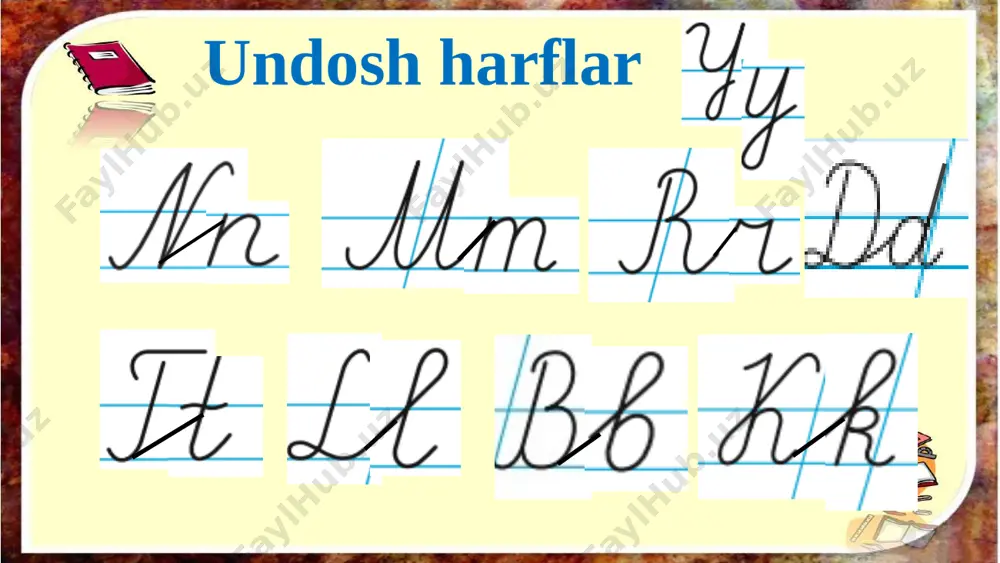 Undosh harflar
Yy
Nn Mm Rr Dd
Tt Ll Bb Kk
FaylHub.uz
FaylHub.uz
FaylHub.uz
FaylHub.uz
FaylHub.uz